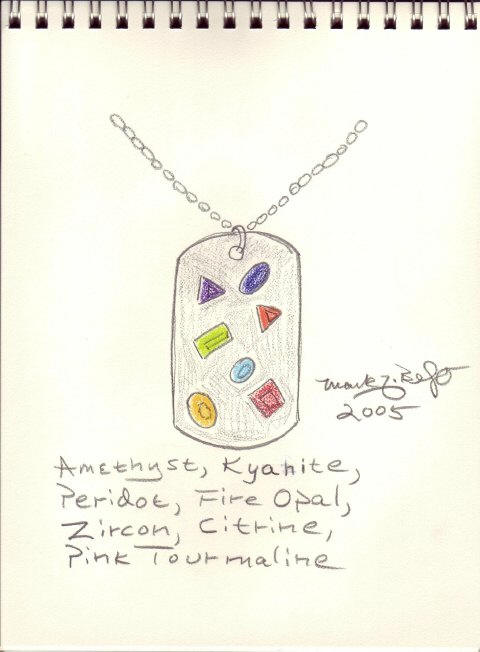 2005
Amethyst, Kyanite,
Peridot, Fire Opal,
Zircon, Citrine,
Pink Tourmaline